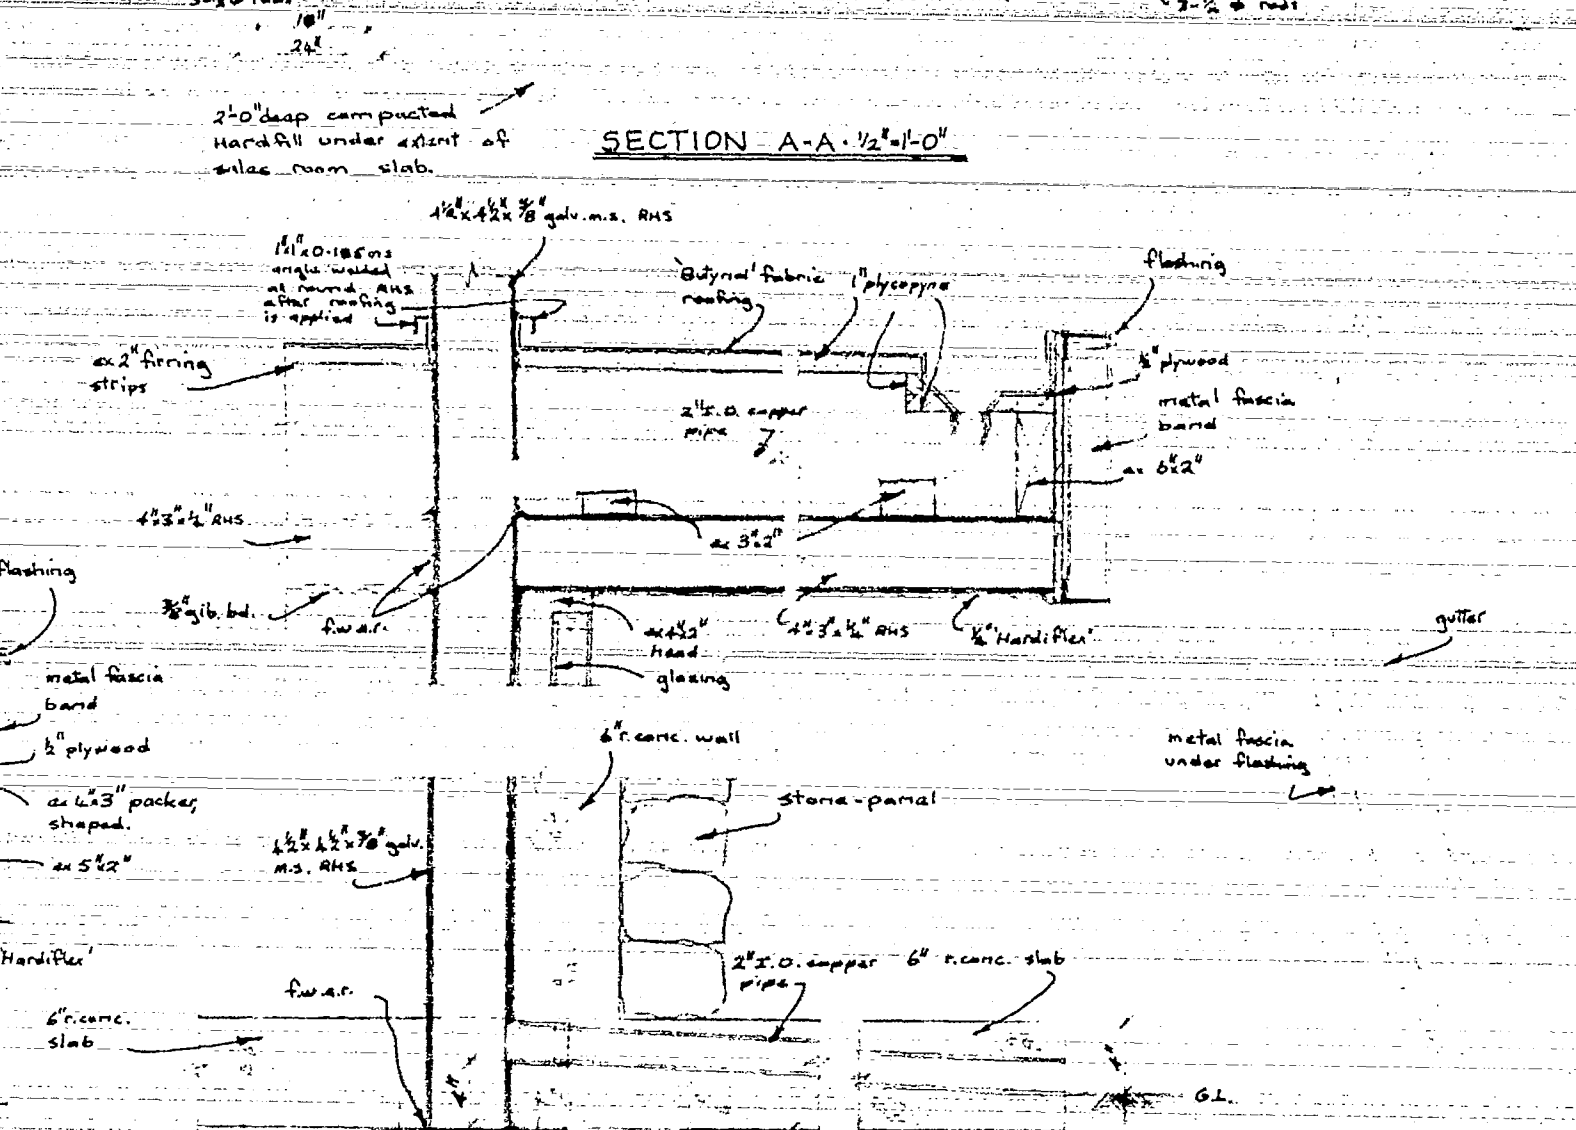 18"
24"
2'-0" deep compacted
Hardfill under extent of
sales room slab.
SECTION A-A · 1/2"=1'-0"
4½"x4½"x3/8" galv. m.s. RHS
1"x1"x0.185 ms
angle welded
all round RHS
after roofing
is applied
'Butynol' fabric
roofing
1" plycopyne
flashing
ex 2" firring
strips
½" plywood
metal fascia
band
2" I.D. copper
pipe
ex 6"x2"
4"x3"x¼" RHS
ex 3"x2"
flashing
3/8" gib. bd.
f.w.a.r.
ex 4"x2"
head
4"x3"x¼" RHS
¼" 'Hardiflex'
glazing
gutter
metal fascia
band
½" plywood
6" r. conc. wall
metal fascia
under flashing
ex 4"x3" packer,
shaped.
stone-panel
4½"x4½"x3/8" galv.
m.s. RHS
ex 5"x2"
'Hardiflex'
2" I.D. copper
pipe
6" r.conc. slab
f.w.a.r.
6" r.conc.
slab
4"
G.L.